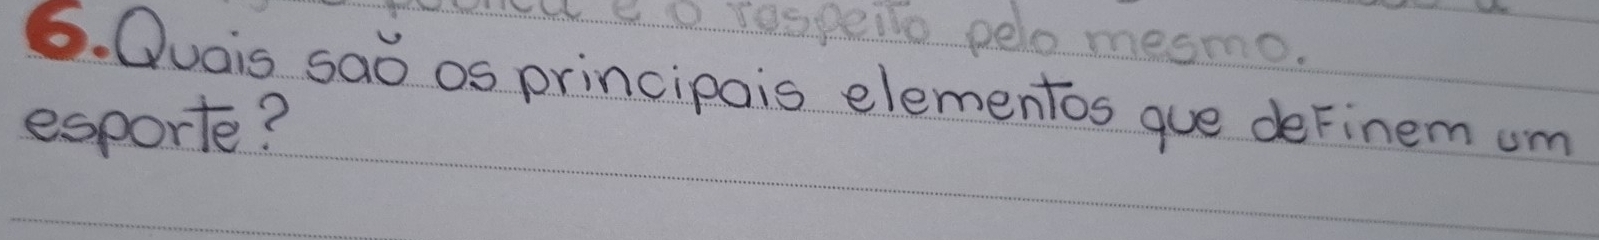 e o respeito pelo mesmo.
6. Quais são os principais elementos que definem um
esporte?